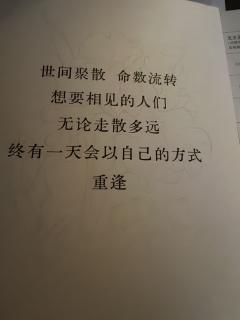 世间聚散 命数流转
想要相见的人们
无论走散多远
终有一天会以自己的方式
重逢